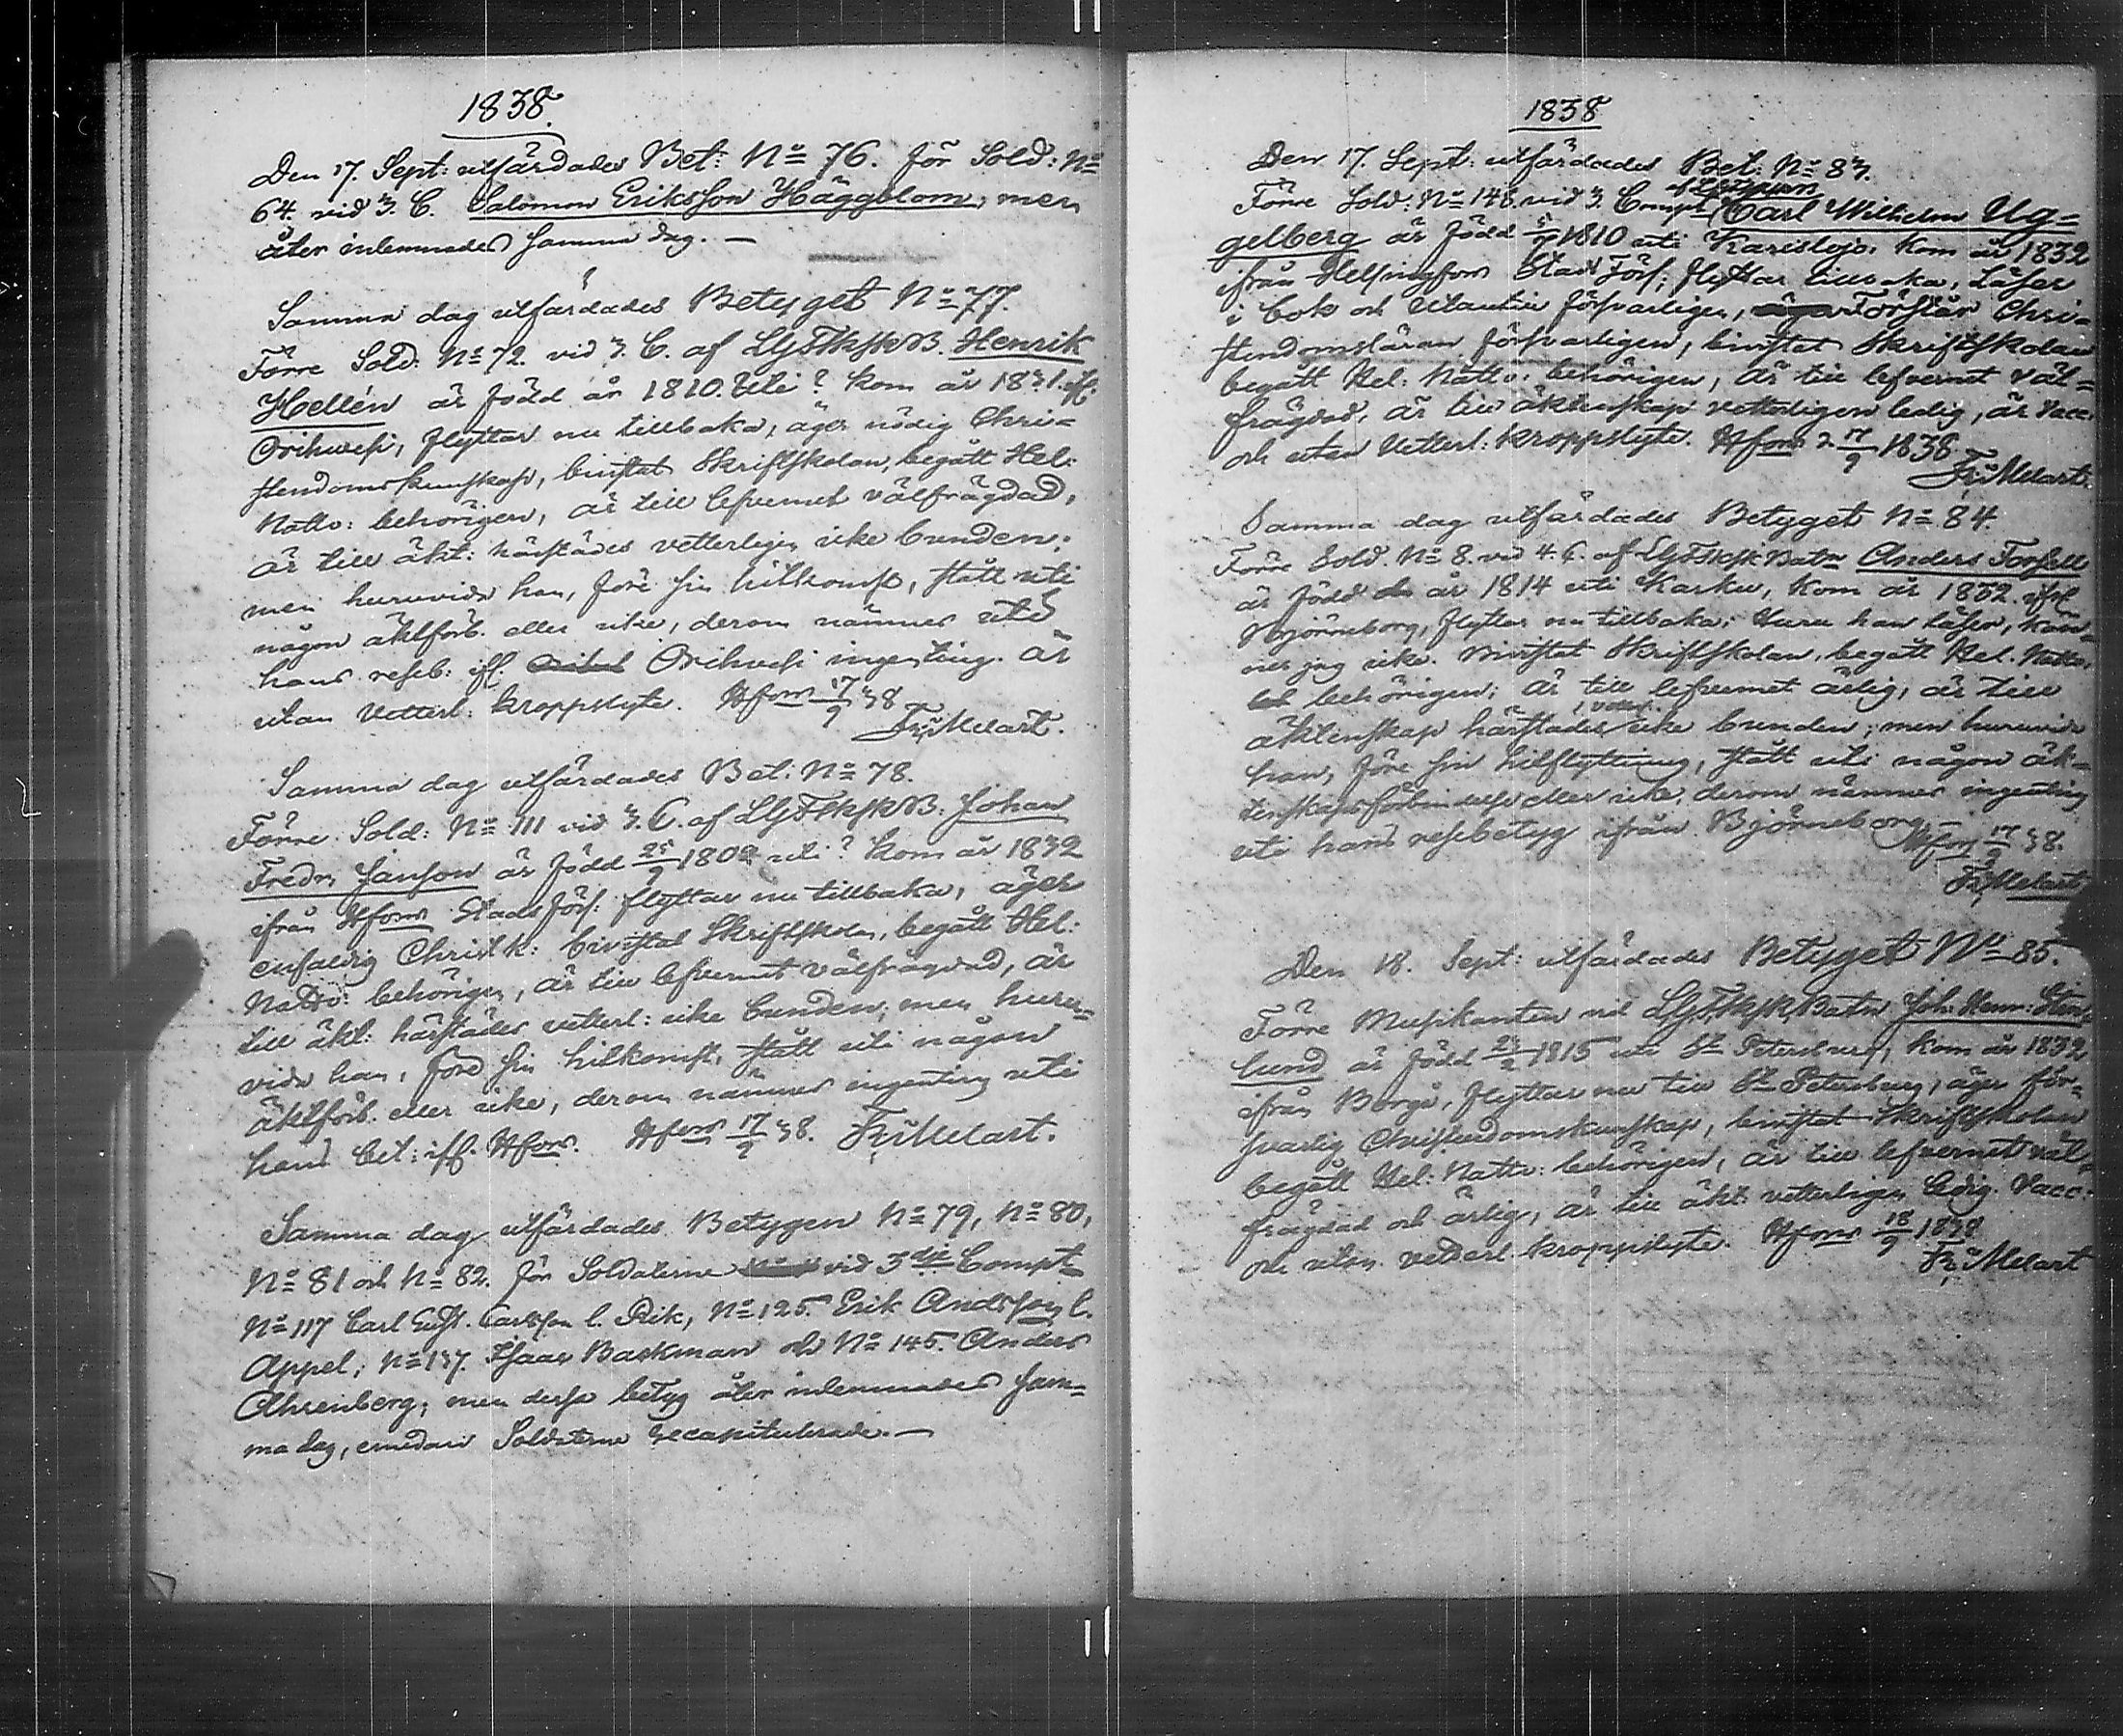 1838.
Den 17. Sept: utfärdades Bet: No 76. för Sold: No
64. vid 3. C. Salomon Eriksson Häggblom, men
åter inlemnades samma dag. —
Samma dag utfärdades Betyget No 77.
Förre Sold: No 72. vid 3. C. af LGFSkskB. Henrik
Hellén är född år 1810. Uti? Kom år 1831. ifr.
Orihvesi, flyttar nu tillbaka, äger nödig Chri-
stendomskunskap, bivistat Skriftskolan, begått Hel:
Nattv: behörigen, är till lefvernet välfrägdad,
är till äkt: härstädes vetterligen icke bunden;
men huruvida han, före sin hitkomst, stått uti
någon äktförb. eller icke, derom nämnes uti
hans reseb: ifr. Orihvesi ingenting. Är
utan vetterl: kroppslyte. Hfors 17/9 38
Fr: Melart.
Samma dag utfärdades Bet: No 78.
Förre Sold: No 111 vid 3. C. af LGFSkskB. Johan
Fredr. Janson är född 25/9 1809 uti? Kom år 1832
ifrån Hfors Stads Förs: flyttar nu tillbaka, äger
enfaldig Christ k: bivistat Skriftskolan, begått Hel:
Nattv: behörigen, är till lefvernet välfrägdad, är
till äkt: härstädes vetterl: icke bunden, men huru-
vida han, före sin hitkomst, stått uti någon
äktförb. eller icke, derom nämnes ingenting uti
hans bet: ifr. Hfors. Hfors 17/9 38. Fr: Melart.
Samma dag utfärdades Betygen No 79, No 80,
No 81 och No 82. för Soldaterne vid 3dje Compt
No 117 Carl Gust. Carlsson l. Rik, No 125. Erik Andsson l.
Appel, No 137. Isaac Backman och No 145. Anders
Ahrenberg; men dessa betyg åter inlemnades sam-
ma dag, emedan Soldaterne recapitulerade. —
1838
Den 17. Sept: utfärdades Bet: No 83.
Förre Sold: No 146 vid 3. Compt Carl Wilhelm Ug-
gelberg är född 5/7 1810 uti Karislojo. Kom år 1832
ifrån Helsingfors Stads Förs: flyttar tillbaka, Läser
i bok och utantill försvarligen, Förstår Chri-
stendomsläran försvarligen, bivistat Skriftskolan
begått Hel: Nattv: behörigen, är till lefvernet väl-
frägdad, är till äktenskap vetterligen ledig, är Vacc.
och utan vetterl: kroppslyte. Hfors d. 17/9 1838.
Fr: Melart.
Samma dag utfärdades Betyget No 84.
Förre Sold. No 8. vid 4. C. af LGFSksk Batn Anders Forsell
är född år 1814 uti Karku, kom år 1832. ifrl
Björneborg, flyttar nu tillbaka: Huru han läser, kän-
ner jag icke. Bivistat Skriftskolan, begått Hel. Nattv.
behörigen; är till lefvernet ärlig, är till
äktenskap härstädes icke bunden; men huruvida
han, före sin hitflyttning, stått uti någon äk-
tenskapsförbindelse eller icke, derom nämnes ingenting
uti hans resebetyg ifrån Björneborg.
Hfors 17/9 38.
Fr: Melart
Den 18. Sept: utfärdades Betyget No 85.
Förre Musikanten vid LGFSksk Batn Joh. Henr: Sten-
lund är född 23/2 1815 uti St Petersburg, kom år 1832
ifrån Borgå, flyttar nu till St Petersburg, äger för-
svarlig Christendomskunskap, bivistat Skriftskolan
begått Hel: Nattv: behörigen, är till lefvernet väl-
frägdad och ärlig, är till äkt: vetterligen ledig. Vacc:
och utan vetterl. kroppslyte. Hfors 18/9 1838
Fr: Melart